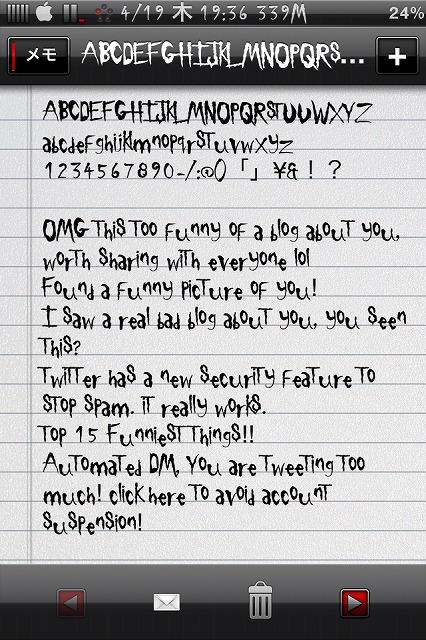 4/19 木 19:36 339M 24%
メモ ABCDEFGHIJKLMNOPQRS... +
ABCDEFGHIJKLMNOPQRSTUVWXYZ
abcdefghijklmnopqrstuvwxyz
1234567890-/:@()「」¥&！？
OMG This too funny of a blog about you,
worth sharing with everyone lol
Found a funny picture of you!
I saw a real bad blog about you, you seen
this?
Twitter has a new security feature to
stop spam. it really works.
Top 15 Funniest Things!!
Automated DM, You are Tweeting too
much! click here to avoid account
suspension!